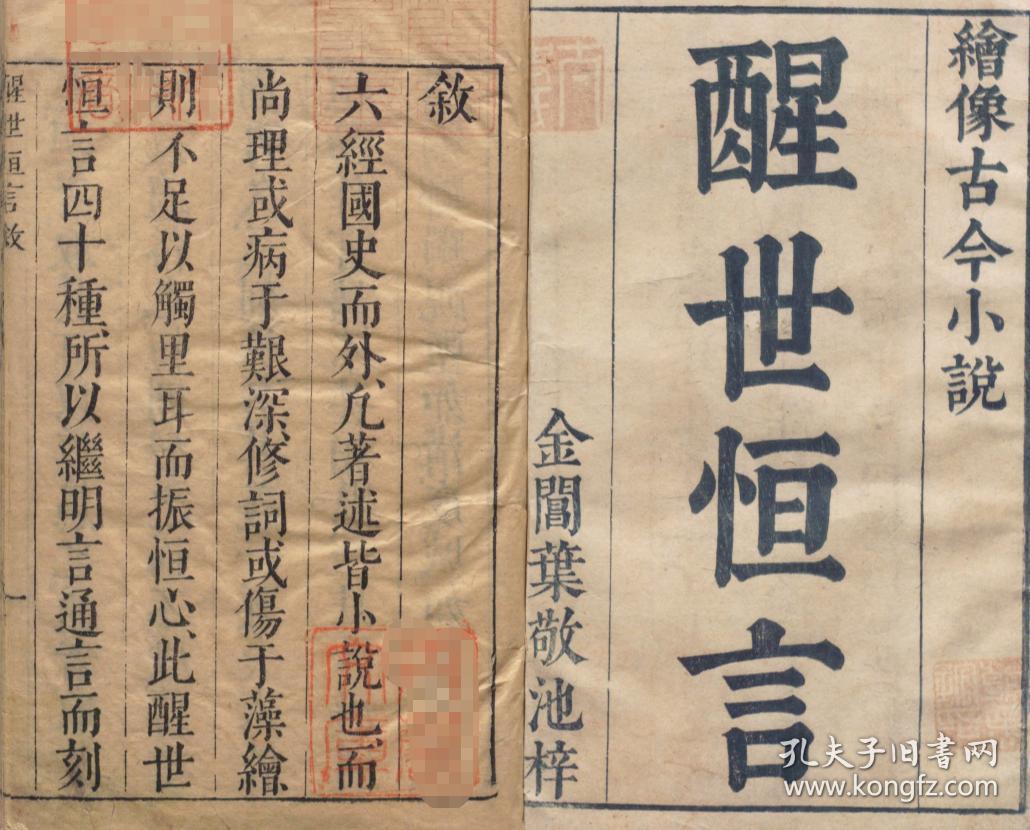 繪像古今小說
醒世恒言
金閶葉敬池梓
敘
六經國史而外、凢著述皆小說也、而
尚理或病于艱深、修詞或傷于藻繪
則不足以觸里耳而振恒心、此醒世
恒言四十種、所以繼明言通言而刻
醒世恒言敘
一
孔夫子旧書网
www.kongfz.com